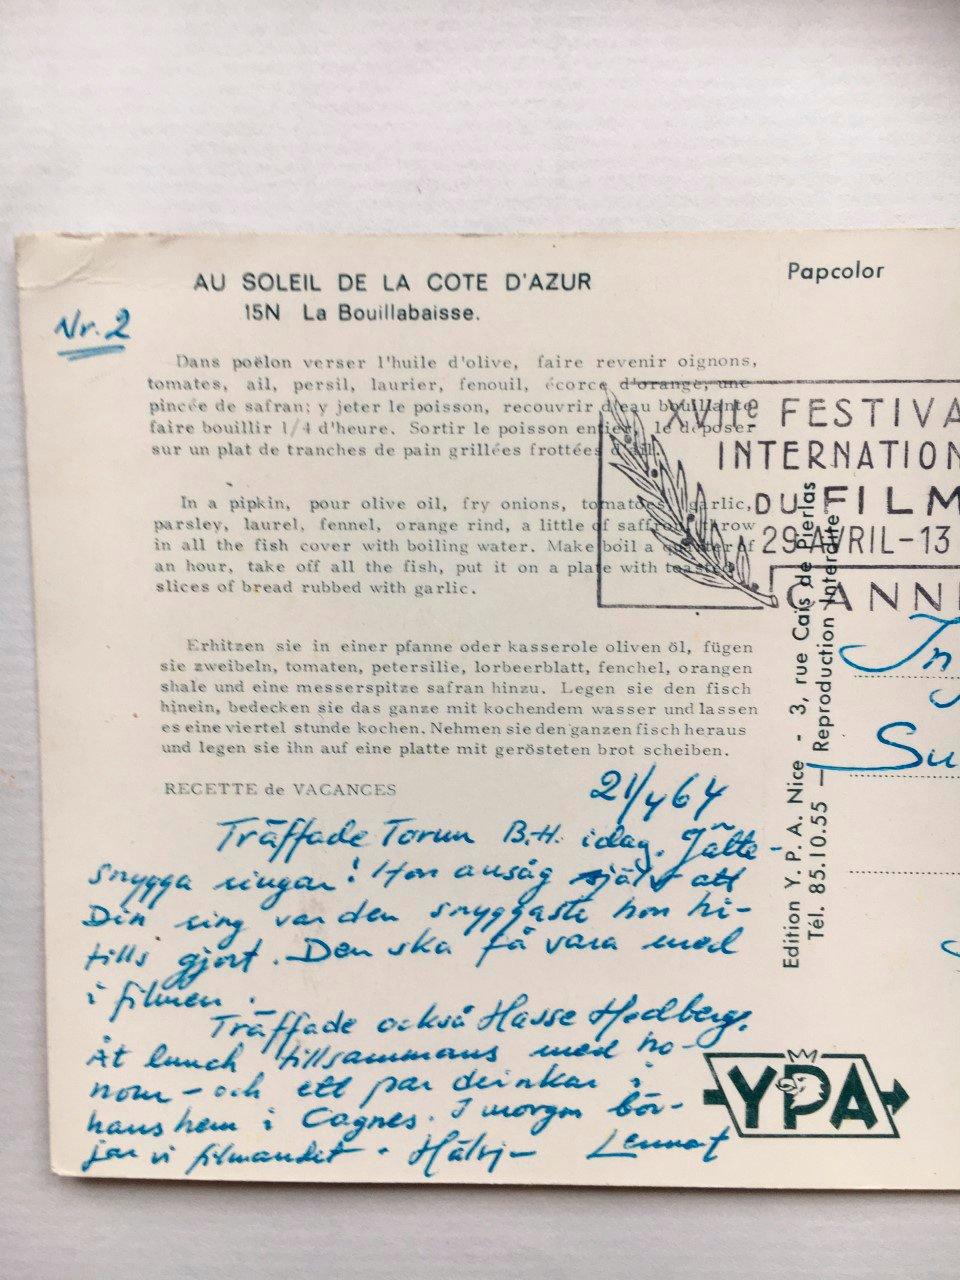 AU SOLEIL DE LA COTE D'AZUR
15N La Bouillabaisse.
Papcolor
Nr. 2
Dans poëlon verser l'huile d'olive, faire revenir oignons,
tomates, ail, persil, laurier, fenouil, écorce d'orange, une
pincée de safran; y jeter le poisson, recouvrir d'eau bouillante
faire bouillir 1/4 d'heure. Sortir le poisson entier, le déposer
sur un plat de tranches de pain grillées frottées d'ail.
XVIIe FESTIVA
INTERNATION
DU FILM
29 AVRIL-13
CANN
In a pipkin, pour olive oil, fry onions, tomatoes, garlic,
parsley, laurel, fennel, orange rind, a little of saffron, throw
in all the fish cover with boiling water. Make boil a quarter of
an hour, take off all the fish, put it on a plate with toasted
slices of bread rubbed with garlic.
Erhitzen sie in einer pfanne oder kasserole oliven öl, fügen
sie zweibeln, tomaten, petersilie, lorbeerblatt, fenchel, orangen
shale und eine messerspitze safran hinzu. Legen sie den fisch
hinein, bedecken sie das ganze mit kochendem wasser und lassen
es eine viertel stunde kochen. Nehmen sie den ganzen fisch heraus
und legen sie ihn auf eine platte mit gerösteten brot scheiben.
RECETTE de VACANCES
21/4 64
Träffade Torun B.-H. idag. Jätte-
snygga ringar! Hon ansåg själv att
Din ring var den snyggaste hon hi-
tills gjort. Den ska få vara med
i filmen.
Träffade också Hasse Hedberg.
Åt lunch tillsammans med ho-
nom - och ett par drinkar i
hans hem i Cagnes. I morgon bör-
jar vi filmandet. Lennart
Edition Y. P. A. Nice - 3, rue Cais de Pierlas
Tél. 85.10.55 — Reproduction Interdite
In
Su
YPA